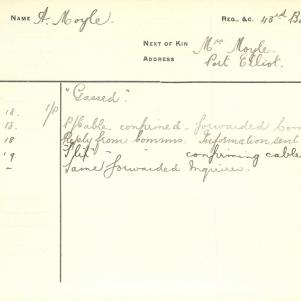 NAME A. Moyle. REG. &C. 43rd B
NEXT OF KIN Mrs Moyle.
ADDRESS Port Elliot.
"Gassed".
18. 1/p
18. P/Cable. confirmed. forwarded Com
18 Reply from Comms. Information sent
19. " " confirming cable
- Same forwarded Inquirer.